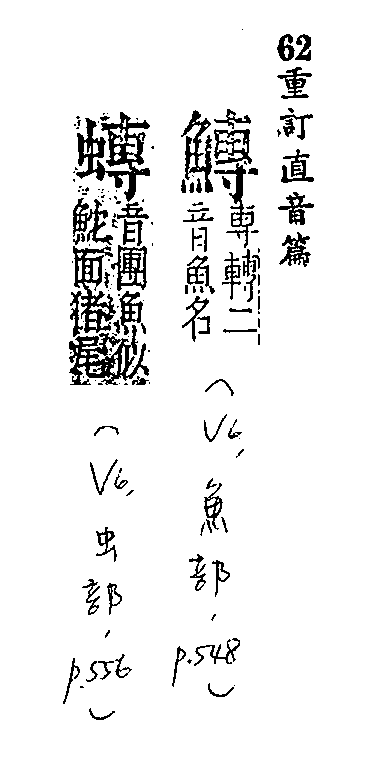 62重訂直音篇
鱄專轉二
音魚名
（V6，魚部，p.548）
䗠音團魚似
魠面猪尾
（V6，虫部，p.556）